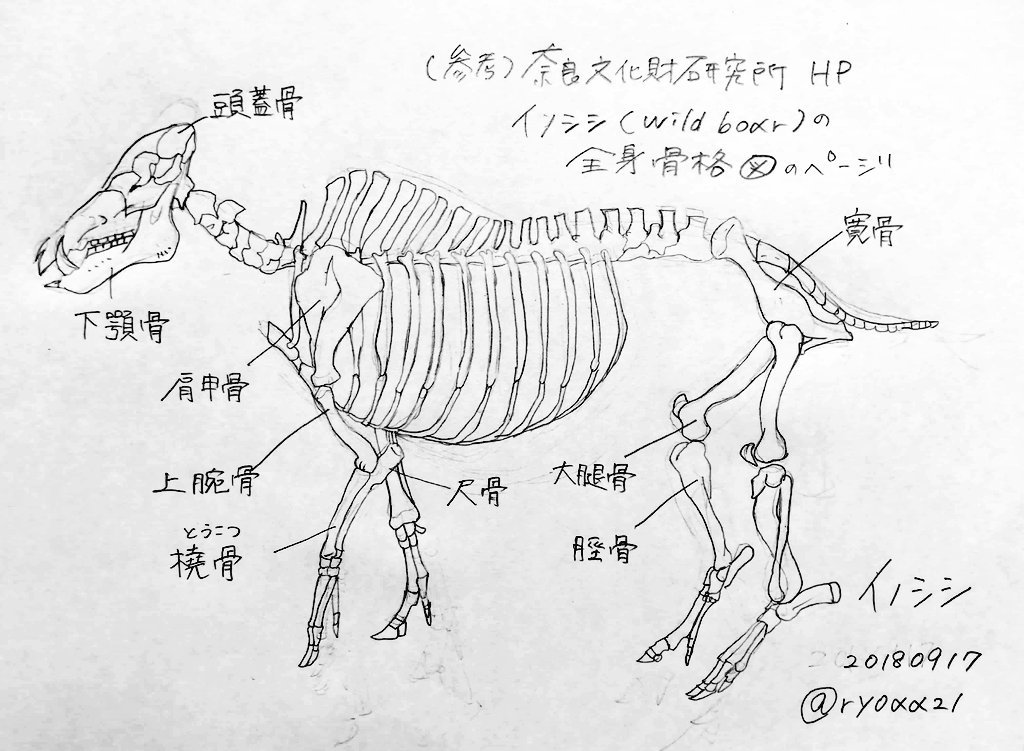 (参考)奈良文化財研究所 HP
イノシシ(wild boar)の
全身骨格図のページ
頭蓋骨
寛骨
下顎骨
肩甲骨
上腕骨
尺骨
大腿骨
とうこつ
橈骨
脛骨
イノシシ
20180917
@ryoαα21